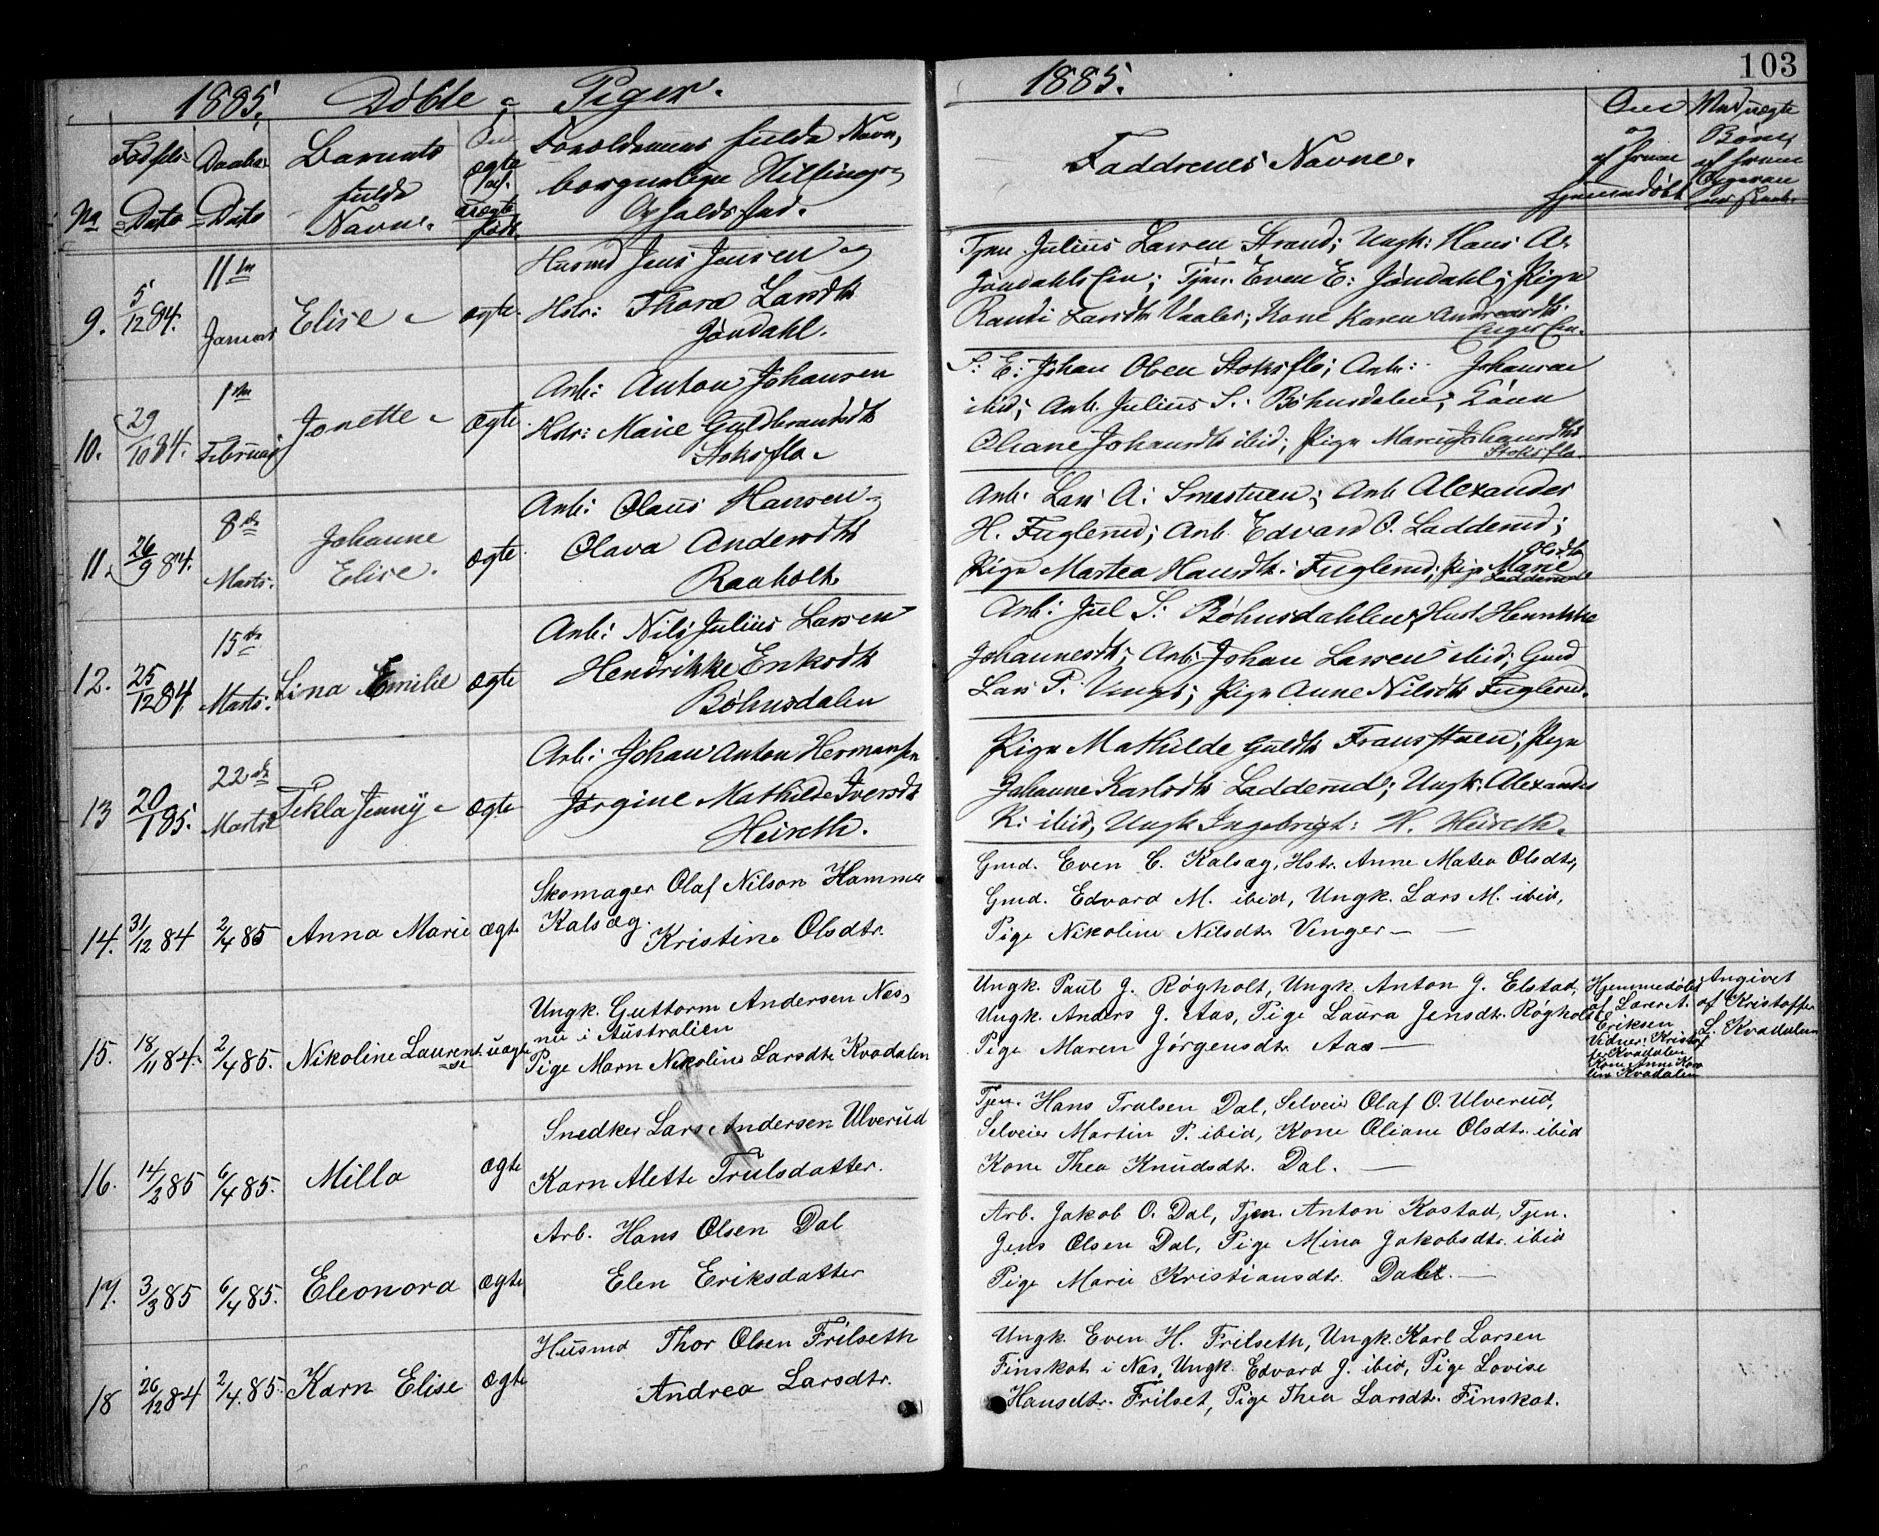 1885. Døbte Piger.
No
Fødsels-
Dato
Daabs-
Dato
Barnets
fulde
Navn.
Om
ægte
el.
uægte
født.
Forældrenes fulde Navn,
borgerlige Stilling
Opholdssted.
9. 5/12 84. 11te Januar Elise ægte.
Husmd Jens Jensen og
Hstr: Thora Larsdtr
Jøndahl.
10. 29/10 84. 1ste Februar Jonette ægte
Arb: Anton Johansen
Hstr: Marie Guldbrandsdtr
Stoksflo
11. 26/9 84. 8de Marts. Johanne
Elise. ægte
Arb: Olaus Hansen
Olava Andersdtr
Raaholt
12. 25/12 84 15de Marts. Lina Emilie ægte
Arb: Nils Julius Larsen
Hendrikke Eriksdtr
Bøhnsdalen
13 20/1 85. 22de Marts Tekla Jenny ægte
Arb: Johan Anton Hermansen
Jørgine Mathilde Iversdtr
Heireth.
14. 31/12 84 2/4 85 Anna Marie ægte
Skomager Olaf Nilson Hammer
Kalsæg.
Kristine Olsdtr.
15. 18/11 84. 2/4 85. Nikoline Laurentse uægte
Ungk. Guttorm Andersen Næs,
nu i Australien
Pige Marn Nikoline Larsdtr. Kvadalen
16. 14/2 85 6/4 85. Milla ægte
Snedker Lars Andersen Ulverud
Karn Alette Trulsdatter.
17. 3/3 85 6/4 85. Eleonora ægte
Arb. Hans Olsen Dal
Elen Eriksdatter
18 26/12 84 2/4 85. Karn Elise ægte
Husmd Thor Olsen Frilseth
Andrea Larsdtr.
103
1885.
Faddrenes Navne.
Om
og
af hvem
hjemmedøbt
Ved uægte
Børn,
af hvem
Opgaven
Tjen. Julius Larsen Strand; Ungk: Hans A.
Jøndahls Eie; Tjen. Even E: Jøndahl; Pige
Randi Larsdtr Vaaler; Kone Karen Andreasdtr.
Enger Eie.
S. E: Johan Olsen Stoksflo; Arb: Johansen
ibid; Arb. Julius S. Bøhnsdalen; Kone
Oliane Johansdtr ibid; Pige Maren Johansdtr
Stoksflo.
Arb: Lars A: Smestuen; Arb Alexander
H. Fuglerud; Arb. Edvard O. Ladderud;
Pige Martea Hansdtr. Fuglerud; Pige Marie Olsdtr
Ladderud
Arb: Juel S: Bøhnsdahlen; Hust Henrikke
Johannesdtr; Arb: Johan Larsen ibid; Gmd
Lars P. Unger; Pige Anne Nilsdtr Fuglerud.
Pige Mathilde Guldtr Fransstuen; Pige
Johanne Karlsdtr Ladderud; Ungk: Alexander
K: ibid, Ungk Ingebrigt: H. Heireth.
Gmd. Even C. Kalsæg, Hstr. Anne Matea Olsdtr,
Gmd. Edvard M. ibid, Ungk. Lars M. ibid,
Pige Nikoline Nilsdtr Vinger —
Ungk. Paul J. Røgholt, Ungk. Anton J. Elstad,
Ungk. Anders J. Aas, Pige Laura Jensdtr. Røgholt
Pige Maren Jørgensdtr. Aas —
Hjemmedøbt
af Læreret.
Eriksen
Vidner: Kristof
fer Kvadalen
Kone Anne Kar
line Kvadalen
Angivet
af Kristoffer
L. Kvadalen
Tjen. Hans Trulsen Dal, Selveier Olaf O. Ulverud,
Selveier Martin P. ibid, Kone Oliane Olsdtr. ibid
Kone Thea Knudsdtr. Dal. —
Arb. Jakob O. Dal, Tjen. Anton Kostad, Tjen.
Jens Olsen Dal, Pige Mina Jakobsdtr. ibid
Pige Marie Kristiansdtr. Dal. —
Ungk. Even H. Frilseth, Ungk. Karl Larsen
Finskot i Næs, Ungk. Edvard J. ibid, Pige Lovise
Hansdtr. Frilset, Pige Thea Larsdtr. Finskot.